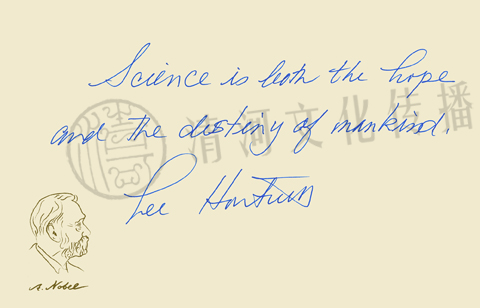 Science is both the hope
and the destiny of mankind.
清河文化传播
Lee Hartwell
A. Nobel